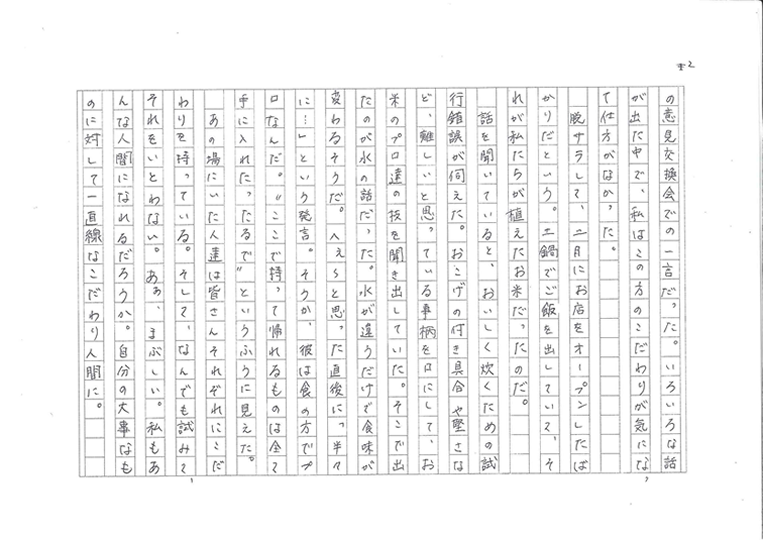 の意見交換会での一言だった。いろいろな話
が出た中で、私はこの方のこだわりが気にな
って仕方がなかった。
脱サラして、二月にお店をオープンしたば
かりだという。土鍋でご飯を出していて、そ
れが私たちが植えたお米だったのだ。
話を聞いていると、おいしく炊くための試
行錯誤が伺えた。おこげの付き具合や堅さな
ど、難しいと思っている事柄を口にして、お
米のプロ達の技を聞き出していた。そこで出
たのが水の話だった。水が違うだけで食味が
変わるそうだ。へぇ〜と思った直後に、半々
に…」という発言。そうか、彼は食の方でプ
ロなんだ。"ここで持って帰れるものは全て
手に入れたったるで"というふうに見えた。
あの場にいた人達は皆さんそれぞれにこだ
わりを持っている。そして、なんでも試みて
それをいとわない。あぁ、まぶしい。私もあ
んな人間になれるだろうか。自分の大事なも
のに対して一直線なこだわり人間に。